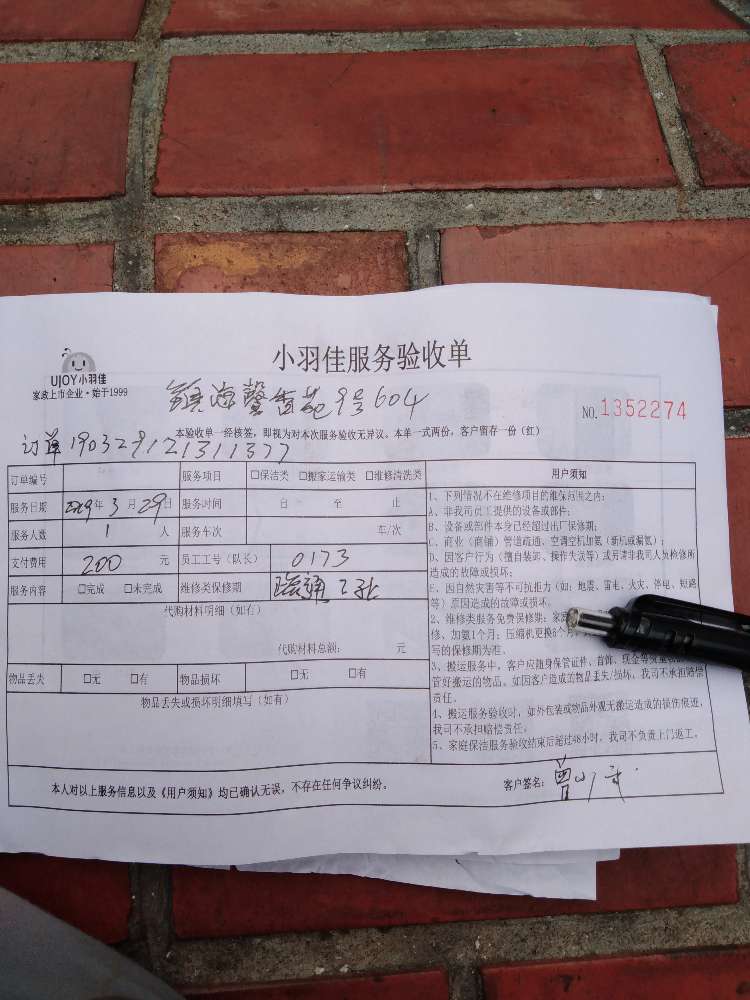 小羽佳服务验收单
UJOY小羽佳
家政上市企业·始于1999
9号604
NO.1352274
本验收单一经核签，即视为对本次服务验收无异议。本单一式两份，客户留存一份（红）
订单190329121311377
订单编号 服务项目 □保洁类 □搬家运输类 □维修清洗类
服务日期 2019年3月29日 服务时间 日 — 至 止
服务人数 1 人 服务车次 车/次
支付费用 200 元 员工工号（队长） 0173
服务内容 □完成 □未完成 维修类保修期 疏通
代购材料明细（如有）
代购材料总额： 元
物品丢失 □无 □有 物品损坏 □无 □有
物品丢失或损坏明细填写（如有）
用户须知
1、下列情况不在维修项目的维保范围之内：
A、非我司员工提供的设备或部件；
B、设备或部件本身已经超过出厂保修期；
C、商业（商铺）管道疏通、空调空机加氨（新机或漏氨）；
D、因客户行为（擅自装卸、操作失误等）或另请非我司人员检修所
造成的故障或损坏；
E、因自然灾害等不可抗拒力（如：地震、雷电、火灾、停电、短路
等）原因造成的故障或损坏。
2、维修类服务免费保修期：
修、加氨1个月；压缩机更换6个月
写的保修期为准。
3、搬运服务中，客户应随身保管证件、首饰、现金等贵重
管好搬运的物品。如因客户造成的物品丢失/损坏，我司不承担赔偿
责任。
4、搬运服务验收时，如外包装或物品外观无搬运造成的损伤痕迹，
我司不承担赔偿责任。
5、家庭保洁服务验收结束后超过48小时，我司不负责上门返工。
本人对以上服务信息以及《用户须知》均已确认无误，不存在任何争议纠纷。
客户签名：曾